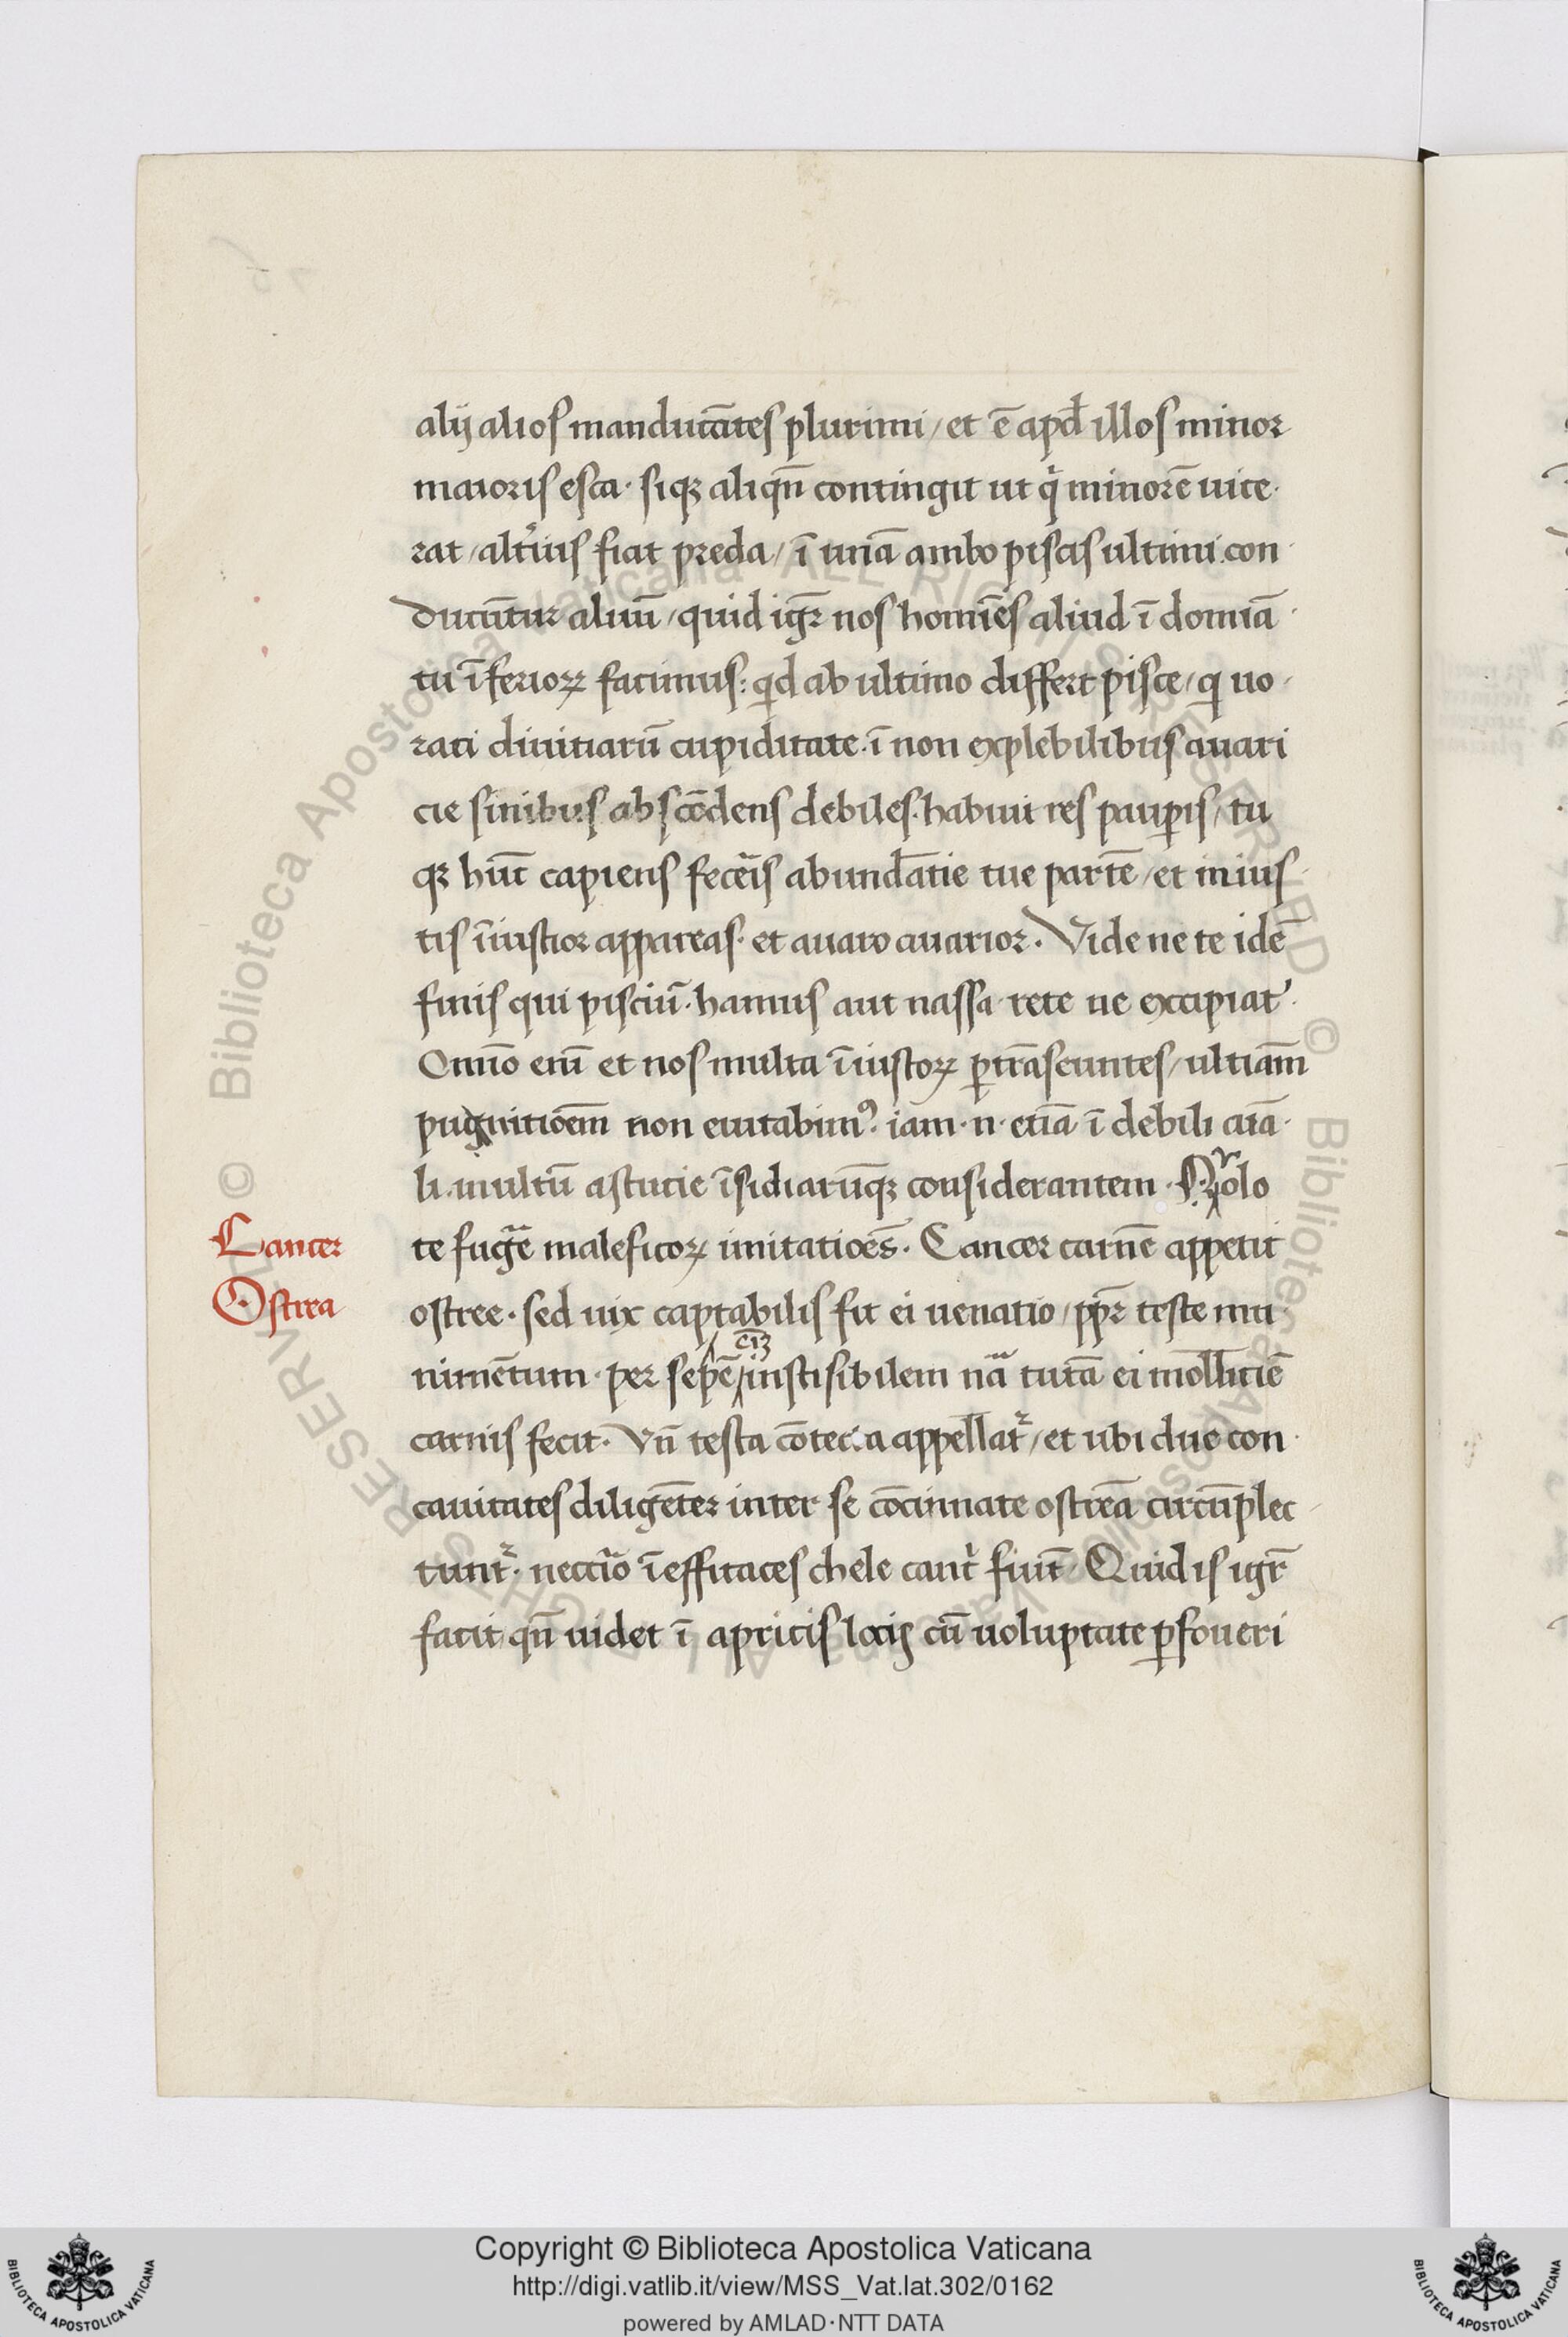 alij aliosmanducātes plurimi / et ē apđ illos minor
maioris esca · siqꝫ aliqn̄ contingit ut q̇ minorē uice
rat / alt̓ius fiat preda / ī unā ambo piscis ultimi con
ducūtur aluū / quid igr̄ nos homīes aliud ī domiā
tu īferioꝝ facimus : qid ab ultimo differt pisce / qi uo
raci diuitiarū cupiditate · ī non explebilibus auari
cie sinibus abscōdens debiles · habuit res paup̱is / tu
qꝫ hūc capiens fecēis abundātie tue partē / et inius
tis īiustior appareas · et auaro auarior · Vide ne te idē
finis qui pisciū · hamus aut nassa rete ue excipiat
Omīo enī et nos multa īiustoꝝ ꝑtrāseuntes / ultiām
pugnitiōem non euitabimꝰ · iam · n · etiā ī debili aīa
li · multū astucie īsidiarūqꝫ considerantem · Nolo
Cancer te fugēe maleficoꝝ imitatiōes · Cancer carnē appetit
Ostrea ostree · sed uix captabilis fit ei uenatio / ꝓpr̄ teste mu
nimētum · per sepē instisibilem nā tutā ei mollitiē
carnis fecit · Vn̄ testa cōtecta appellat᷑ / et ubi due con
cauitates diligēter inter se cōcinnate ostreā circūplec
tunt᷑ · neccīo īefficaces chele canc̓ fiūt · Quid is igr̄
facit qn̄ uidet ī apricis locis cū uoluptate ꝑfoueri
Copyright © Biblioteca Apostolica Vaticana
http://digi.vatlib.it/view/MSS_Vat.lat.302/0162
powered by AMLAD·NTT DATA